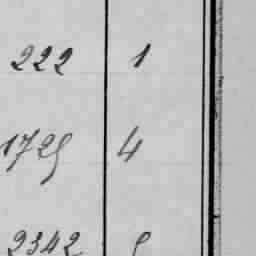 222 1
1725 4
2342